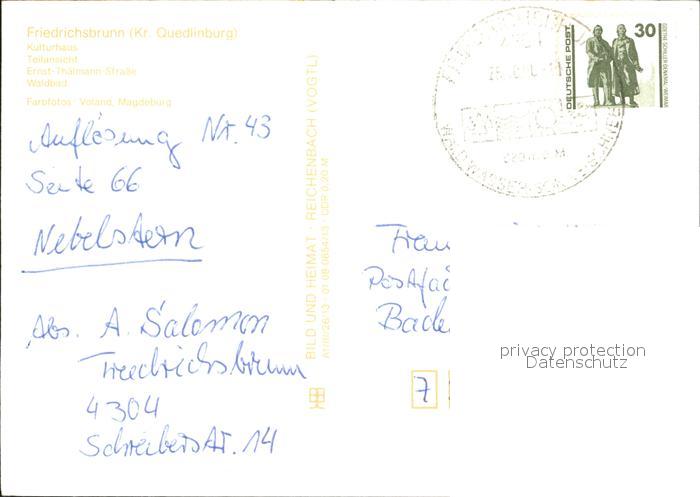 Friedrichsbrunn (Kr. Quedlinburg)
Kulturhaus
Teilansicht
Ernst-Thälmann-Straße
Waldbad
Farbfotos: Voland, Magdeburg
Auflösung Nr. 43
Seite 66
Nebelstern
Abs. A. Salomon
Friedrichsbrunn
4304
Schreiberstr. 14
BILD UND HEIMAT · REICHENBACH (VOGTL)
DEUTSCHE POST
30
GOETHE-SCHILLER-DENKMAL · WEIMAR
Frau
Postfac
Bade
7
privacy protection
Datenschutz